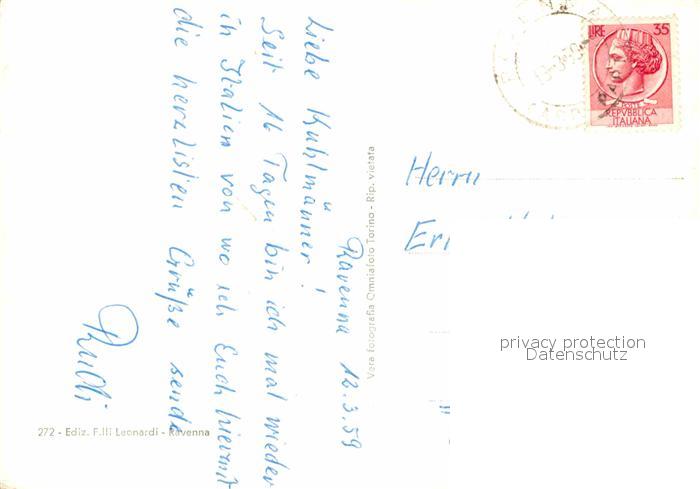 Ravenna 12.3.59
Liebe Kuhlmänner!
Seit 16 Tagen bin ich mal wieder
in Italien von wo ich Euch hiermit
die herzlisten Grüße sende
Vera fotografia Omniafoto Torino - Rip. vietata
272 - Ediz. F.lli Leonardi - Ravenna
LIRE 35
REPVBBLICA
ITALIANA
Herrn
privacy protection
Datenschutz